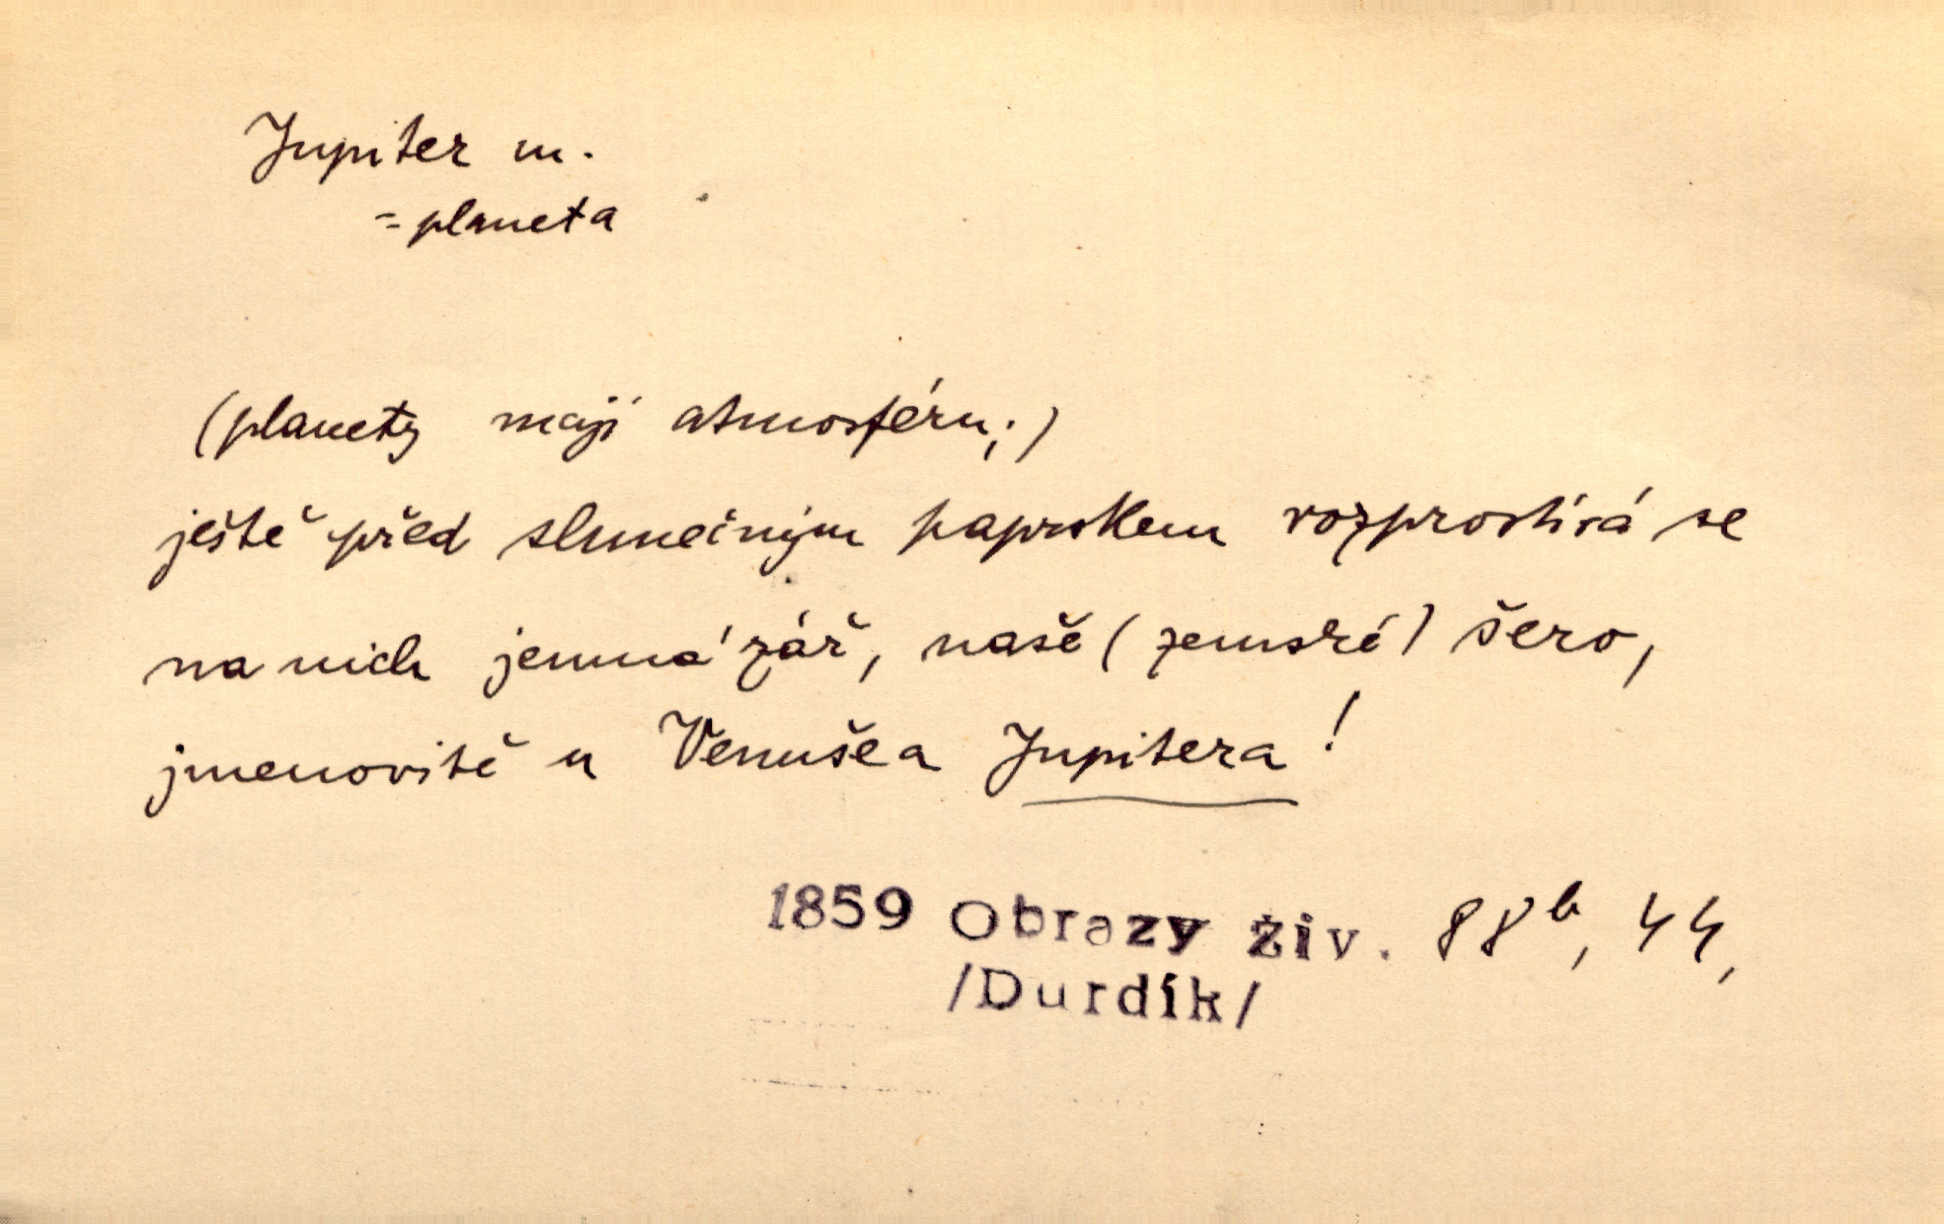 Jupiter m.
= planeta
(planety mají atmosféru;)
ještě před slunečným paprskem rozprostírá se
na nich jemná zář, naše (zemské) šero,
jmenovitě u Venuše a Jupitera!
1859 Obrazy živ. 88b, 44,
/Durdík/